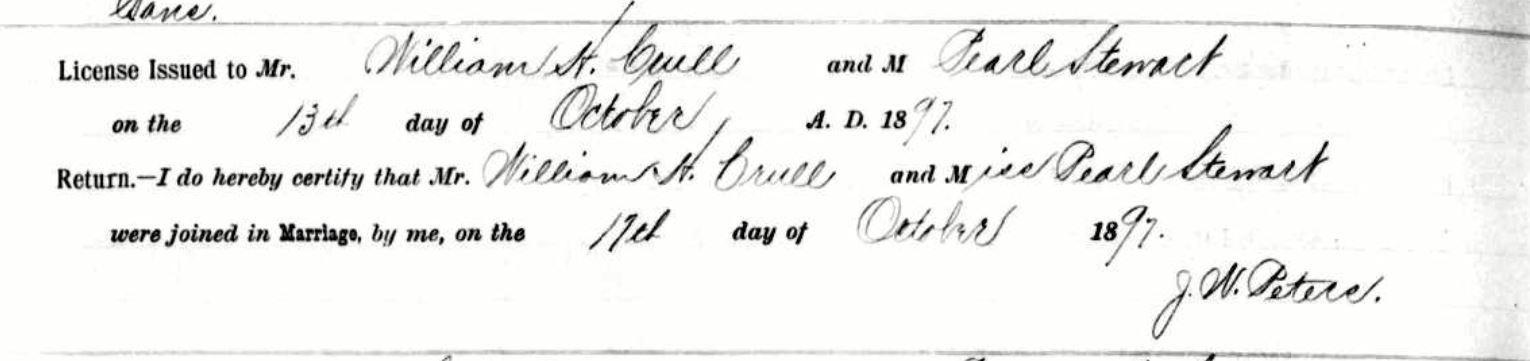 Sane.
License Issued to Mr. William H. Crull and M Pearl Stewart
on the 13th day of October A. D. 1897.
Return.—I do hereby certify that Mr. William H. Crull and Miss Pearl Stewart
were joined in Marriage, by me, on the 17th day of October 1897.
J. W. Peters.